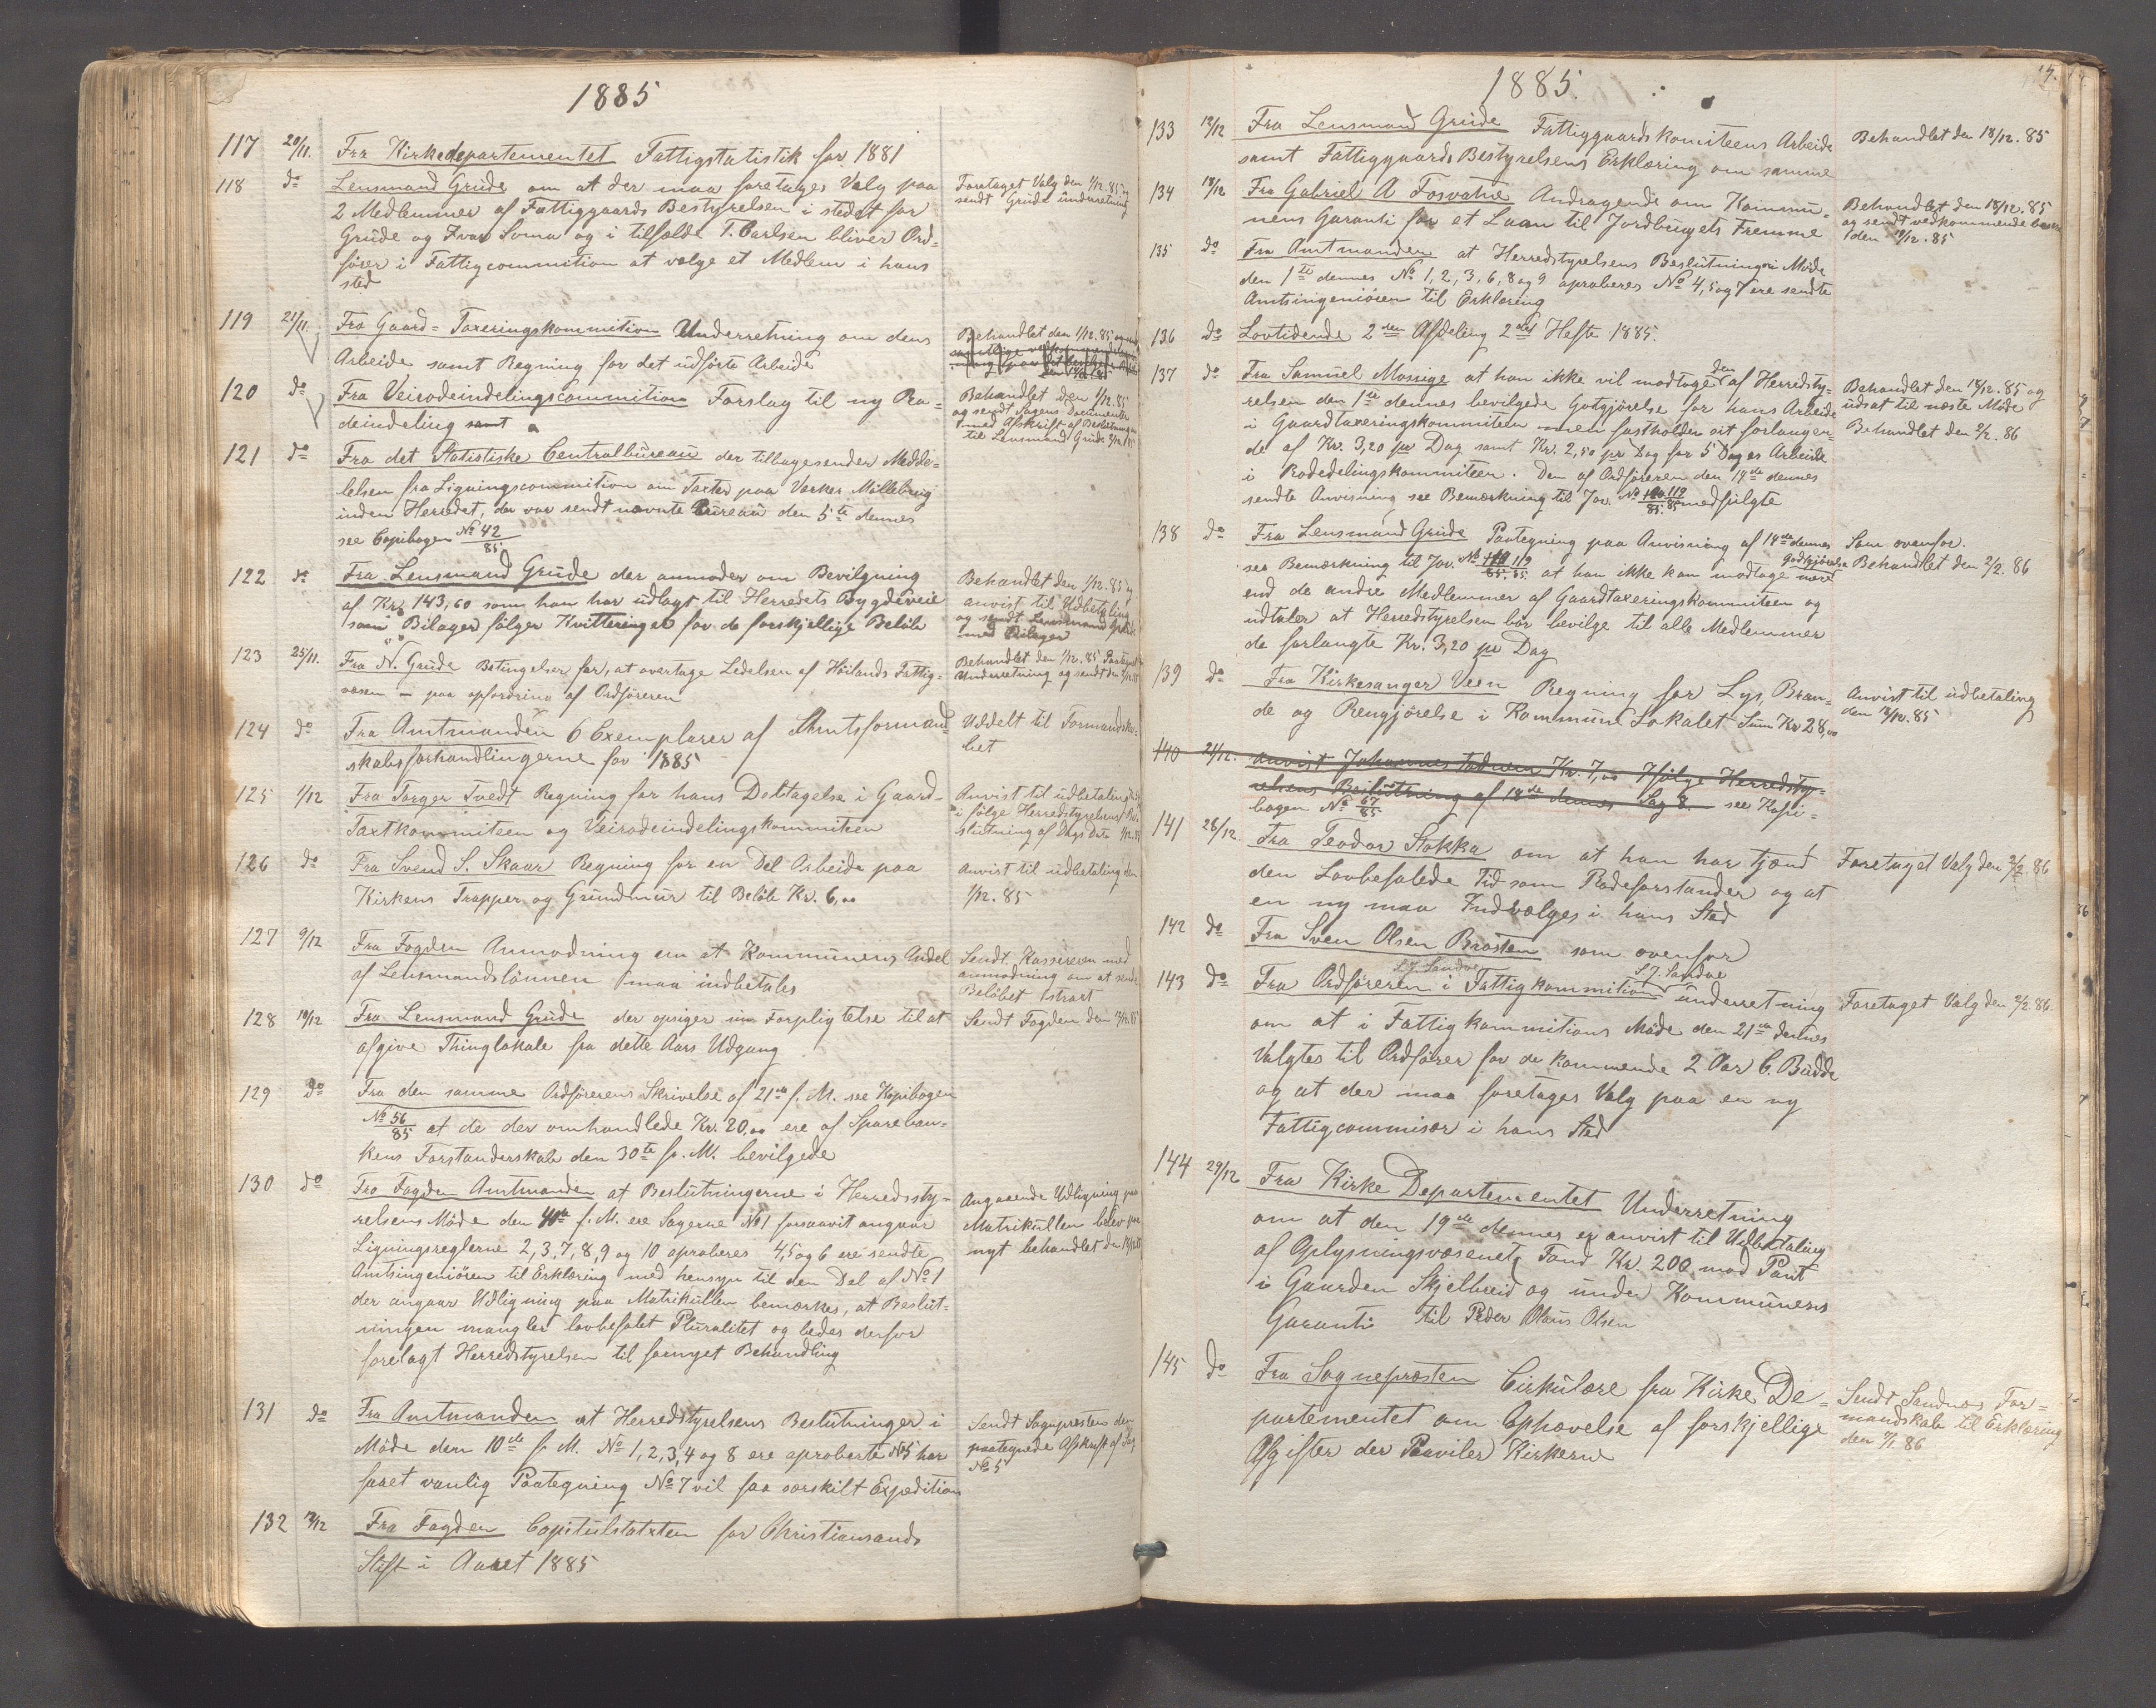 1885
117 20/11. Fra Kirkedepartementet Fattigstatistik for 1881
118 do Lensmand Grude om at der maa foretages Valg paa
2 Medlemmer af Fattiggaards Bestyrelsen i stedet for
Grude og Ivar Soma og i tilfælde T. Carlsen bliver Ord=
fører i Fattigcommition at vælge et Medlem i hans
sted
Foretaget Valg den 1/12. 85 og
sendt Grude underretning
119 21/11. Fra Gaard=Taxeringskommition Underretning om dens
Arbeide samt Regning for det udførte Arbeide
Behandlet den 1/12. 85
120 do Fra Veirodeindelingscommition Forslag til ny Ro=
deindeling samt
Behandlet den 1/12 85
og sendt Sagens Documenter
med Afskrift af Beslutningen
til Lensmand Grude
121 do Fra det Statistiske Centralbureau der tilbagesender Medde=
lelsen fra Ligningscommition om Taxter paa Værker Møllebrug
inden Herredet, der var sendt nævnte Bureau den 5te dennes
see Copibogen No 42/85.
122 do Fra Lensmand Grude der anmoder om Bevilgning
af Kr. 143,60 som han har udlagt til Herredets Bygdeveie
som Bilager følger Kvitteringer for de forskjellige Beløb
Behandlet den 1/12. 85 og
anvist til Udbetaling
og sendt Lensmand Grude
med Bilager
123 25/11. Fra N. Grude Betingelser for, at overtage Ledelsen af Høilands Fattig=
væsen – paa opfordring af Ordføreren
Behandlet den 1/12. 85
Underretning og sendt den
124 do Fra Amtmanden 6 Exemplarer af Amtsformand=
skabsforhandlingerne for 1885
Uddelt til Formandska=
bet
125 1/12 Fra Torger Tvedt Regning for hans Deltagelse i Gaard=
Taxtkommiteen og Veirodeindelingskommiteen
Anvist til udbetaling
i følge Herredstyrelsens Be=
slutning af Dags Dato 1/12. 85
126 do Fra Svend S. Skaar Regning for en Del Arbeide paa
Kirkens Trapper og Grundmur til Beløb Kr. 6,00
Anvist til udbetaling den
1/12. 85
127 9/12 Fra Fogden Anmodning om at Kommunens Andel
af Lensmandslønnen maa indbetales
Sendt Kassereren med
anmodning om at sende
Beløbet strax
128 10/12 Fra Lensmand Grude der opsiger sin Forpligtelse til at
afgive Thinglokale fra dette Aars Udgang
Sendt Fogden den
129 do Fra den samme Ordførerens Skrivelse af 21de f. M. see Kopibogen
No 56/85 at de der omhandlede Kr. 20,00 ere af Spareban=
kens Forstanderskab den 30te f. M. bevilgede
130 do Fra Fogden Amtmanden at Beslutningerne i Herredssty=
relsens Møde den f. M. ere Sagerne No 1 forsaavit angaar
Ligningsreglerne 2,3,7,8,9 og 10 aproberes 4,5 og 6 ere sendte
Amtsingeniøren til Erklæring med hensyn til den Del af No 1
der angaar Udligning paa Matrikullen bemærkes, at Beslut=
ningen mangler lovbefalet Pluralitet og bedes derfor
forelagt Herredstyrelsen til fornyet Behandling
Angaaende Udligning paa
Matrikullen blev paa
nyt behandlet den
131 do Fra Amtmanden at Herredstyrelsens Beslutninger i
Møde den 10de f. M. No 1, 2, 3, 4 og 8 ere aproberte No 5 har
faaet vanlig Paategning No 7 vil faa særskilt Expedition
Sendt Sognepresten den
paategnede Afskrift af Sag
No 5
132 Fra Fogden Capitulstaxten for Christiansands
Stift i Aaret 1885
1885.
133 18/12 Fra Lensmand Grude Fattiggaardskomiteens Arbeide
samt Fattiggaards Bestyrelsens Erklæring om samme
Behandlet den 18/12. 85
134 18/12 Fra Gabriel A Fosvatne Andragende om Kommu=
nens Garanti for et Laan til Jordbrugets Fremme
Behandlet den 18/12. 85
og sendt vedkommende
den 18/12. 85
135 do Fra Amtmanden at Herredstyrelsens Beslutninger i Møde
den 1te dennes No 1, 2, 3, 6, 8 og 9 aproberes No 4, 5 og 7 ere sendte
Amtsingeniøren til Erklæring
136 do Lovtidende 2den Afdeling 2det Hefte 1885.
137 do Fra Samuel Mossige at han ikke vil modtage den af Herredsty=
relsen den 1te dennes bevilgede Godtgjørelse for hans Arbeide
i Gaardtaxeringskommiteen men fastholder sit forlangen=
de af Kr. 3,20 pr Dag samt Kr. 2,50 pr Dag for 5 Dages Arbeide
i Rodedelingskommiteen. Den af Ordføreren den 14de dennes
sendte Anvisning see Bemærkning til Jor. No 119/85 medfulgte
Behandlet den 18/12. 85 og
udsat til næste Møde
Behandlet den 2/2. 86
138 do Fra Lensmand Grude Paategning paa Anvisning af 14de dennes
see Bemærkning til Jor. No 119/85 at han ikke kan modtage mere Godtgjørelse
end de andre Medlemmer af Gaardtaxeringskommiteen og
udtaler at Herredstyrelsen bør bevilge til alle Medlemmer
de forlangte Kr. 3,20 pr Dag
Som ovenfor.
Behandlet den 2/2. 86
139 do Fra Kirkesanger Veen Regning for Lys, Bræn=
de og Rengjørelse i Kommune Lokalet Sum Kr 28,00
Anvist til udbetaling
den 18/12. 85
140 21/12. anvist Johannes Kr. 7,00 Ifølge Herredsty=
relsens Beslutning af 18de dennes Sag 8. see Kopi=
bogen No 67/85
141 28/12. Fra Teodor Stokka om at han har tjent
den Lovbefalede Tid som Rodeforstander og at
en ny maa Indvælges i hans Sted
Foretaget Valg den 2/2. 86
142 do Fra Sven Olsen Brøsten som ovenfor
143 do Fra Ordføreren i Fattigkommition S J. Sandve underretning
om at i Fattigkommitions Møde den 21de dennes
Valgtes til Ordfører for de kommende 2 Aar C. Budde
og at der maa foretages Valg paa en ny
Fattigcommisær i hans Sted
Foretaget Valg den 2/2. 86
144 29/12 Fra Kirke Departementet Underretning
om at den 19de dennes er anvist til Udbetaling
af Oplysningsvæsenets Fond Kr. 200 mod Pant
i Gaarden Skjelbreid og under Kommunens
Garanti til Peder Olaus Olsen
145 do Fra Sognepræsten Cirkulære fra Kirke De=
partementet om Ophævelse af forskjellige
Afgifter der Paaviler Kirkerne
Sendt Sandnes For=
mandskab til Erklæring
den 7/1 86